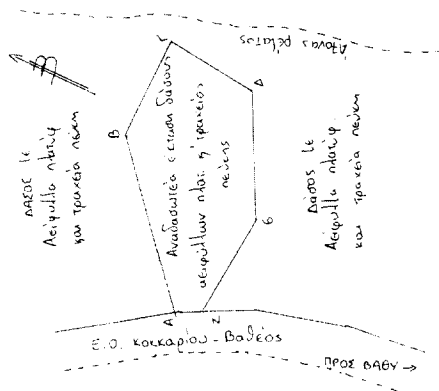 Άξονας ρέματος
Γ
Δ
Β
ΔΑΣΟΣ με
Αείφυλλα πλατύφ.
και τραχεία πεύκη
Αναδασωτέα έκταση δάσους
αειφύλλων πλατ. & τραχείας
πεύκης
Δάσος με
Αείφυλλα πλατύφ.
και τραχεία πεύκη
Α
Ν
Ε.Ο. Κοκκαρίου - Βαθέος
ΠΡΟΣ ΒΑΘΥ →